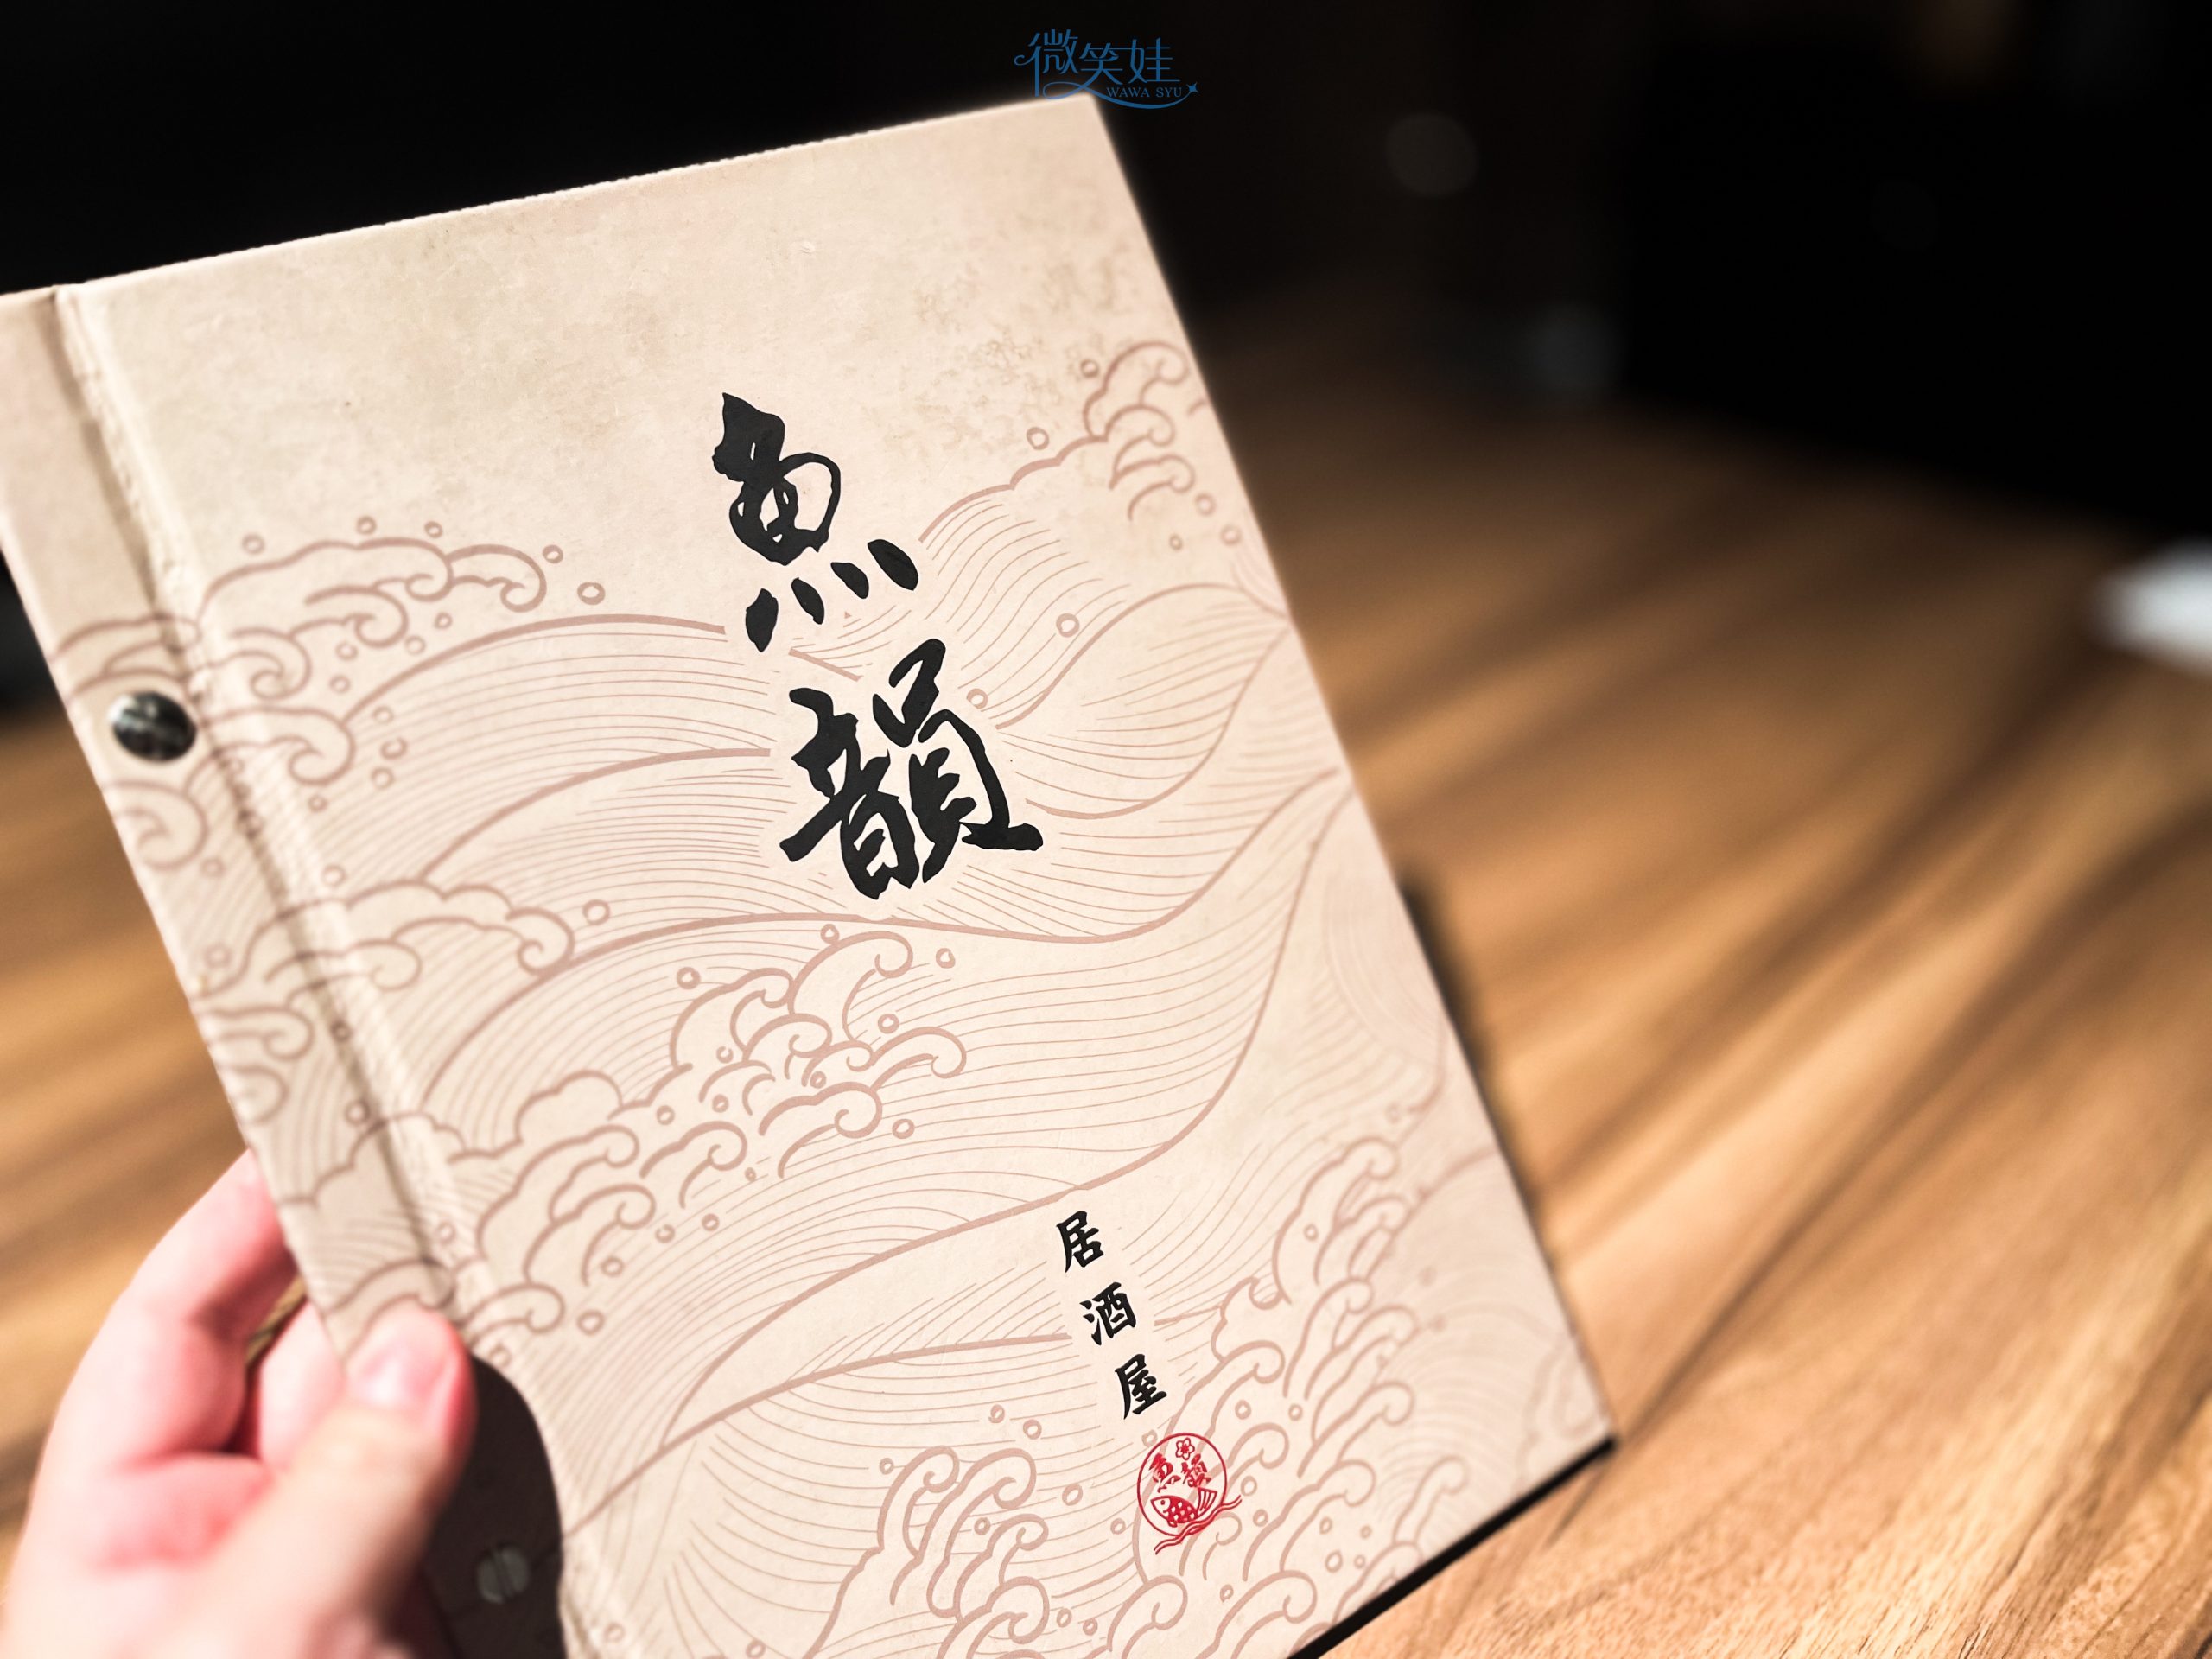 微笑娃
WAWA SYU
魚韻
居酒屋
魚韻